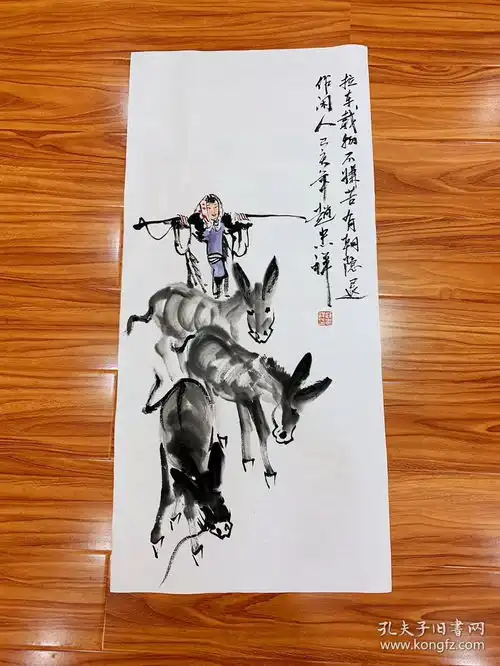 拉车载物不嫌苦有朝隐退
作闲人己亥年赵忠祥
孔夫子旧书网
www.kongfz.com